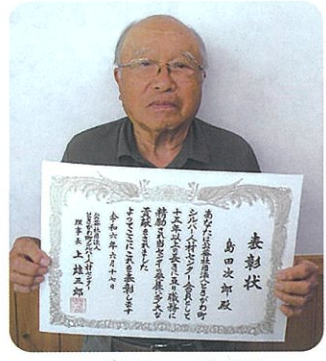 表彰状
島田次郎殿
あなたは公益社団法人ときがわ町
シルバー人材センター会員として
十五年以上の長きに亘り職務に
精励され当センターの発展に多大な
貢献をされました
よってここにこれを表彰します
令和六年六月十七日
公益社団法人
ときがわ町シルバー人材センター
理事長 上雄三郎